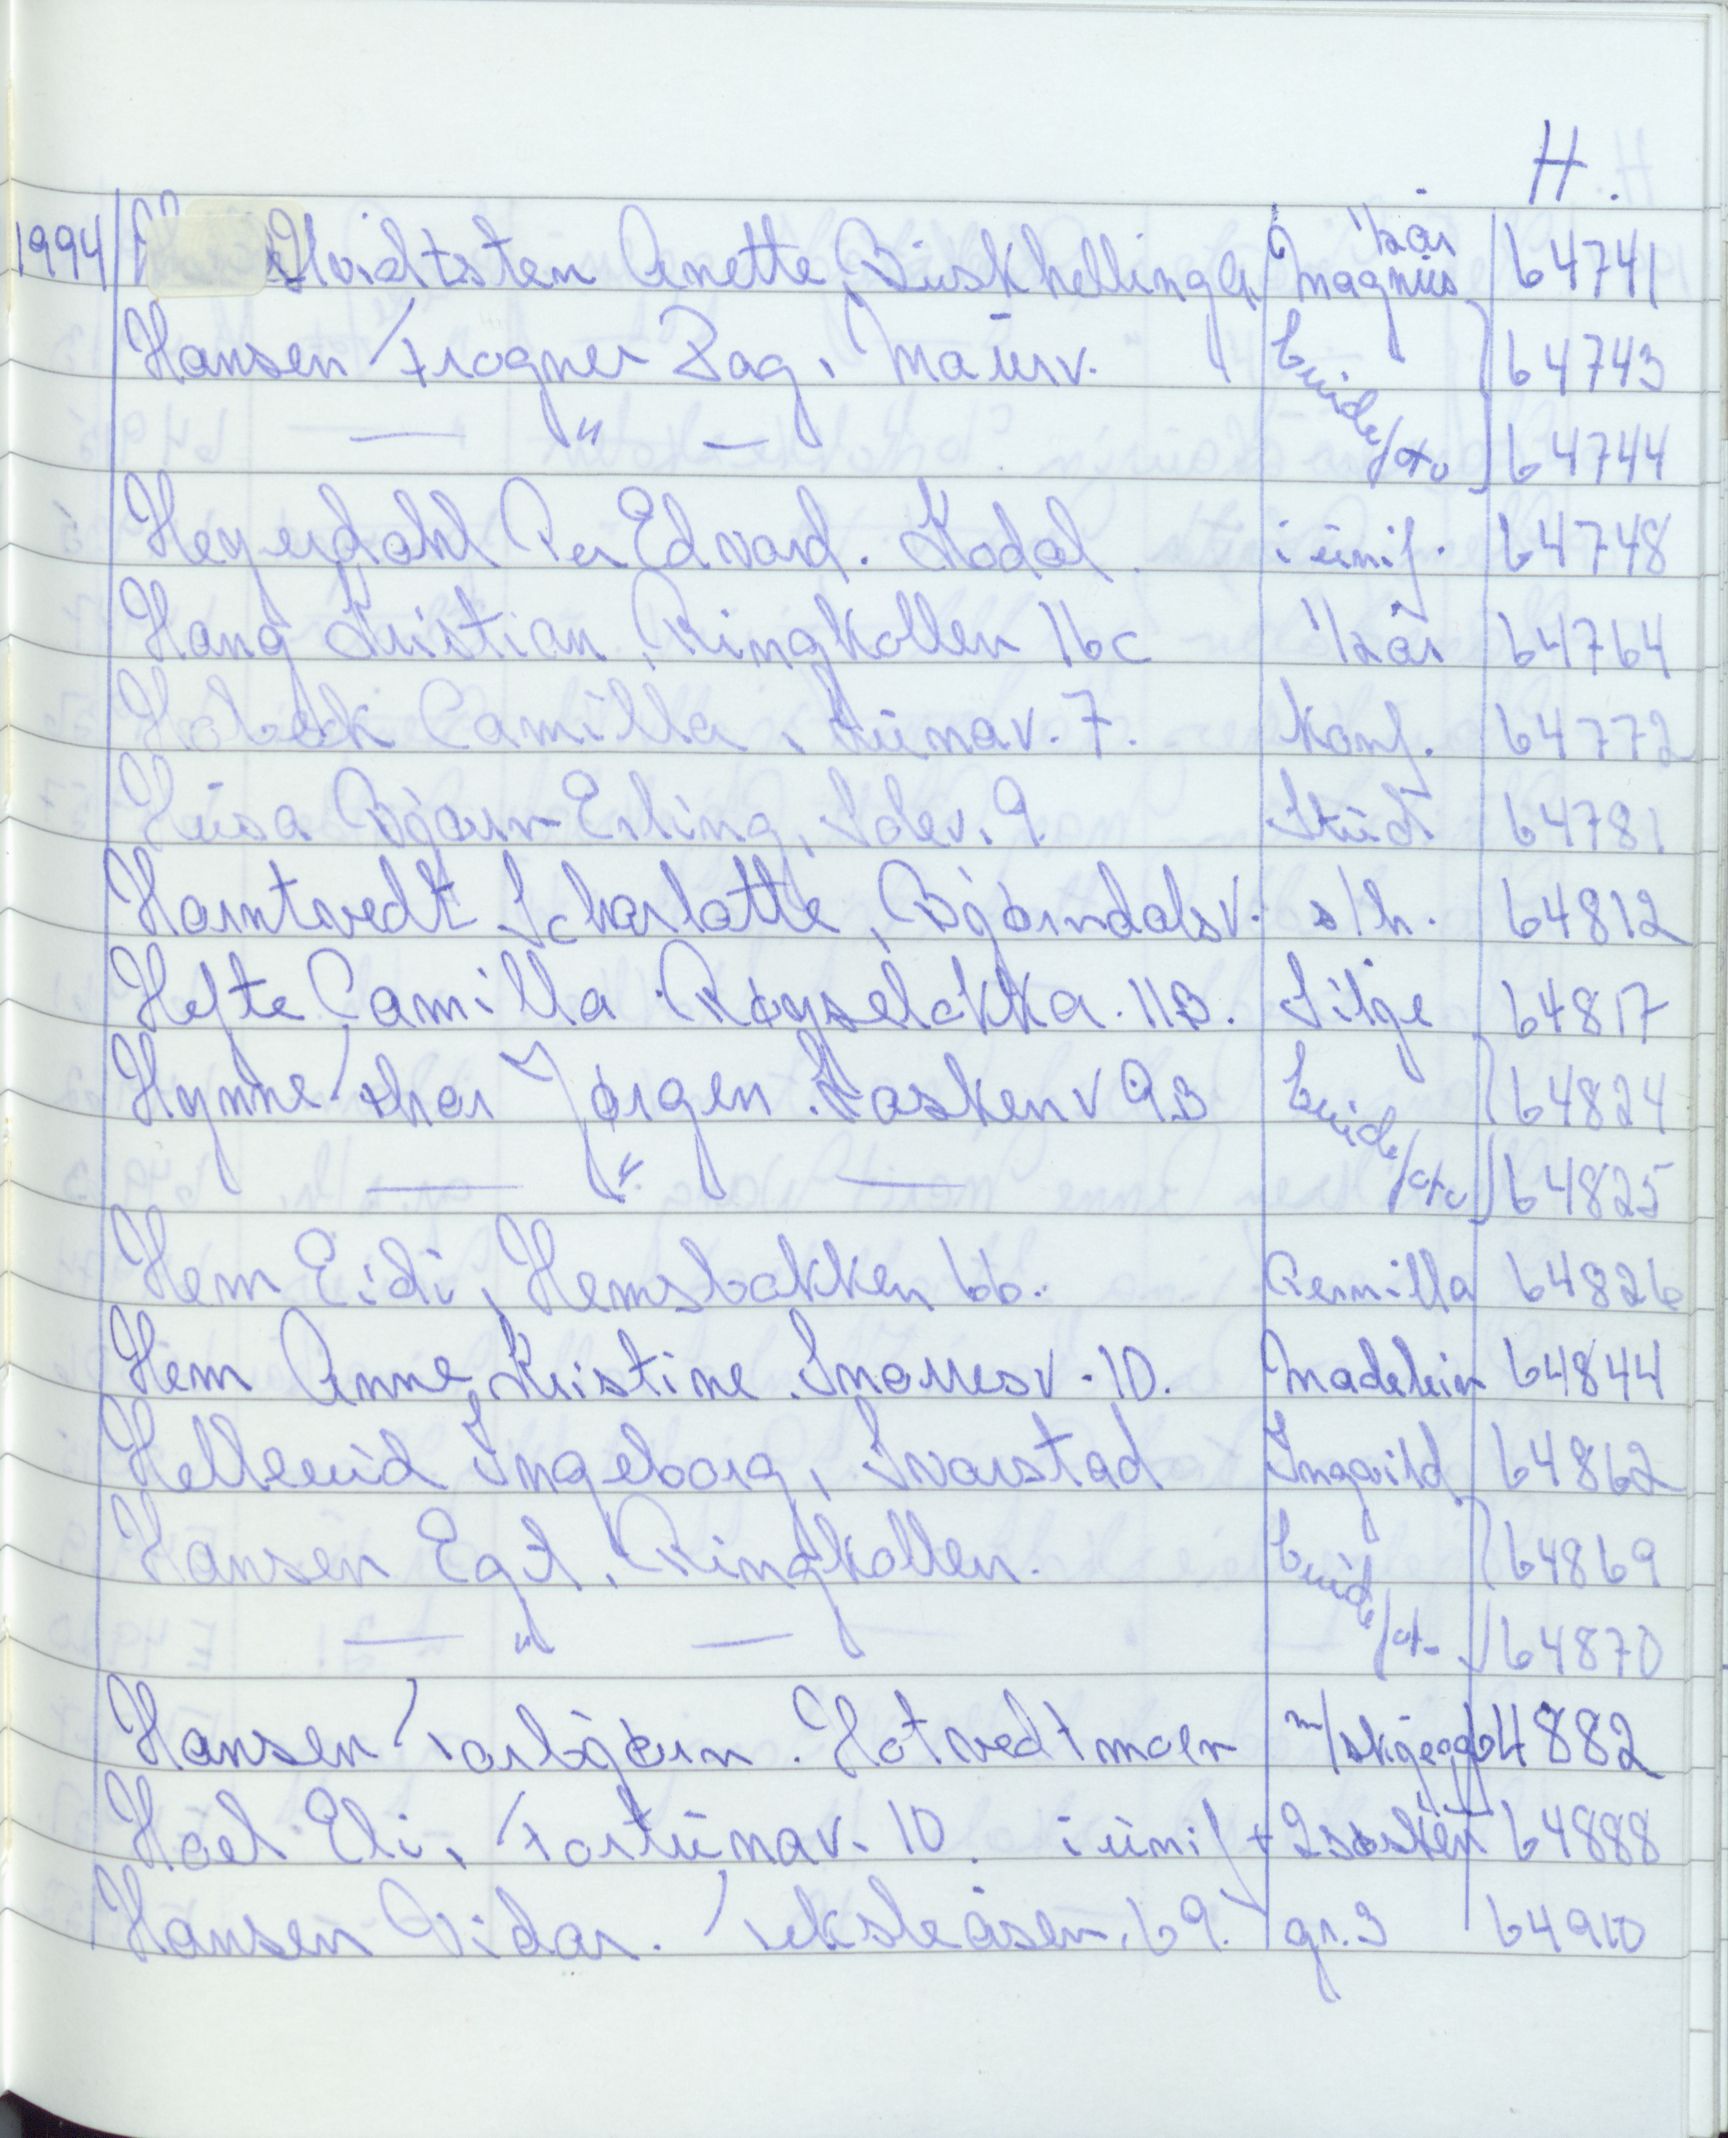 H.
1994 Hvidtsten Anette, Buskhellinga Magnus 1/2 år 64741
Hansen / Frogner Dag, Maurv. brude/ 64743
— " — foto 64744
Heyerdahl Per Edvard. Kodal i unif. 64748
Haug Kristian, Ringkollen 16c 1/2 år 64764
Hobæk Camilla, Lunav. 7. konf. 64772
Husa Bjørn Erling, 9 Stud 64781
Horntvedt Scharlotte, Bjørndalsv. s/h. 64812
Hefte Camilla. Røyseløkka. 11B. Silje 64817
Hynne / Jørgen. 9B brude/ 64824
— " — foto 64825
Hem Eidi, Hemsbakken 66. Pernilla 64826
Hem Anne Kristine. Snorresv. 10. Madelein 64844
Hellerud Ingeborg, Svarstad Ingvild 64862
Hansen Egil, Ringkollen. brude/ 64869
— " — foto 64870
Hansen Torbjørn. Hotvedtmoen m/skjegg 64882
Hoel Eli, Fortunav. 10. i unif + 2 søsken 64888
Hansen Vidar. Veksleåsen. 69. gr. 3 64910